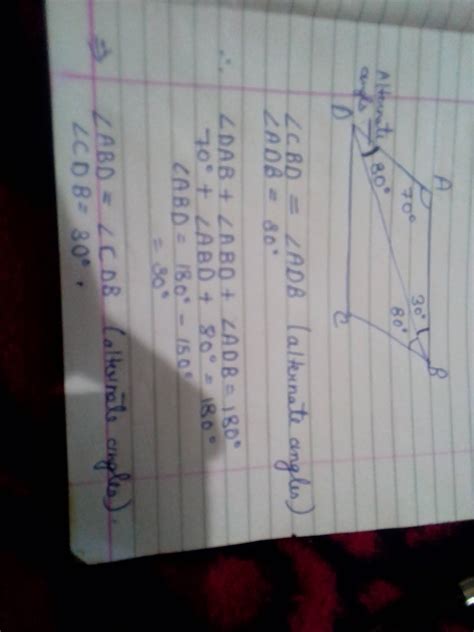 A
B
70°
30°
80°
Alternate
angles
80°
D
C
∠CBD = ∠ADB (alternate angles)
∠ADB = 80°
∴ ∠DAB + ∠ABD + ∠ADB = 180°
70° + ∠ABD + 80° = 180°
∠ABD = 180° - 150°
= 30°
⇒ ∠ABD = ∠CDB (alternate angles).
∠CDB = 30°.